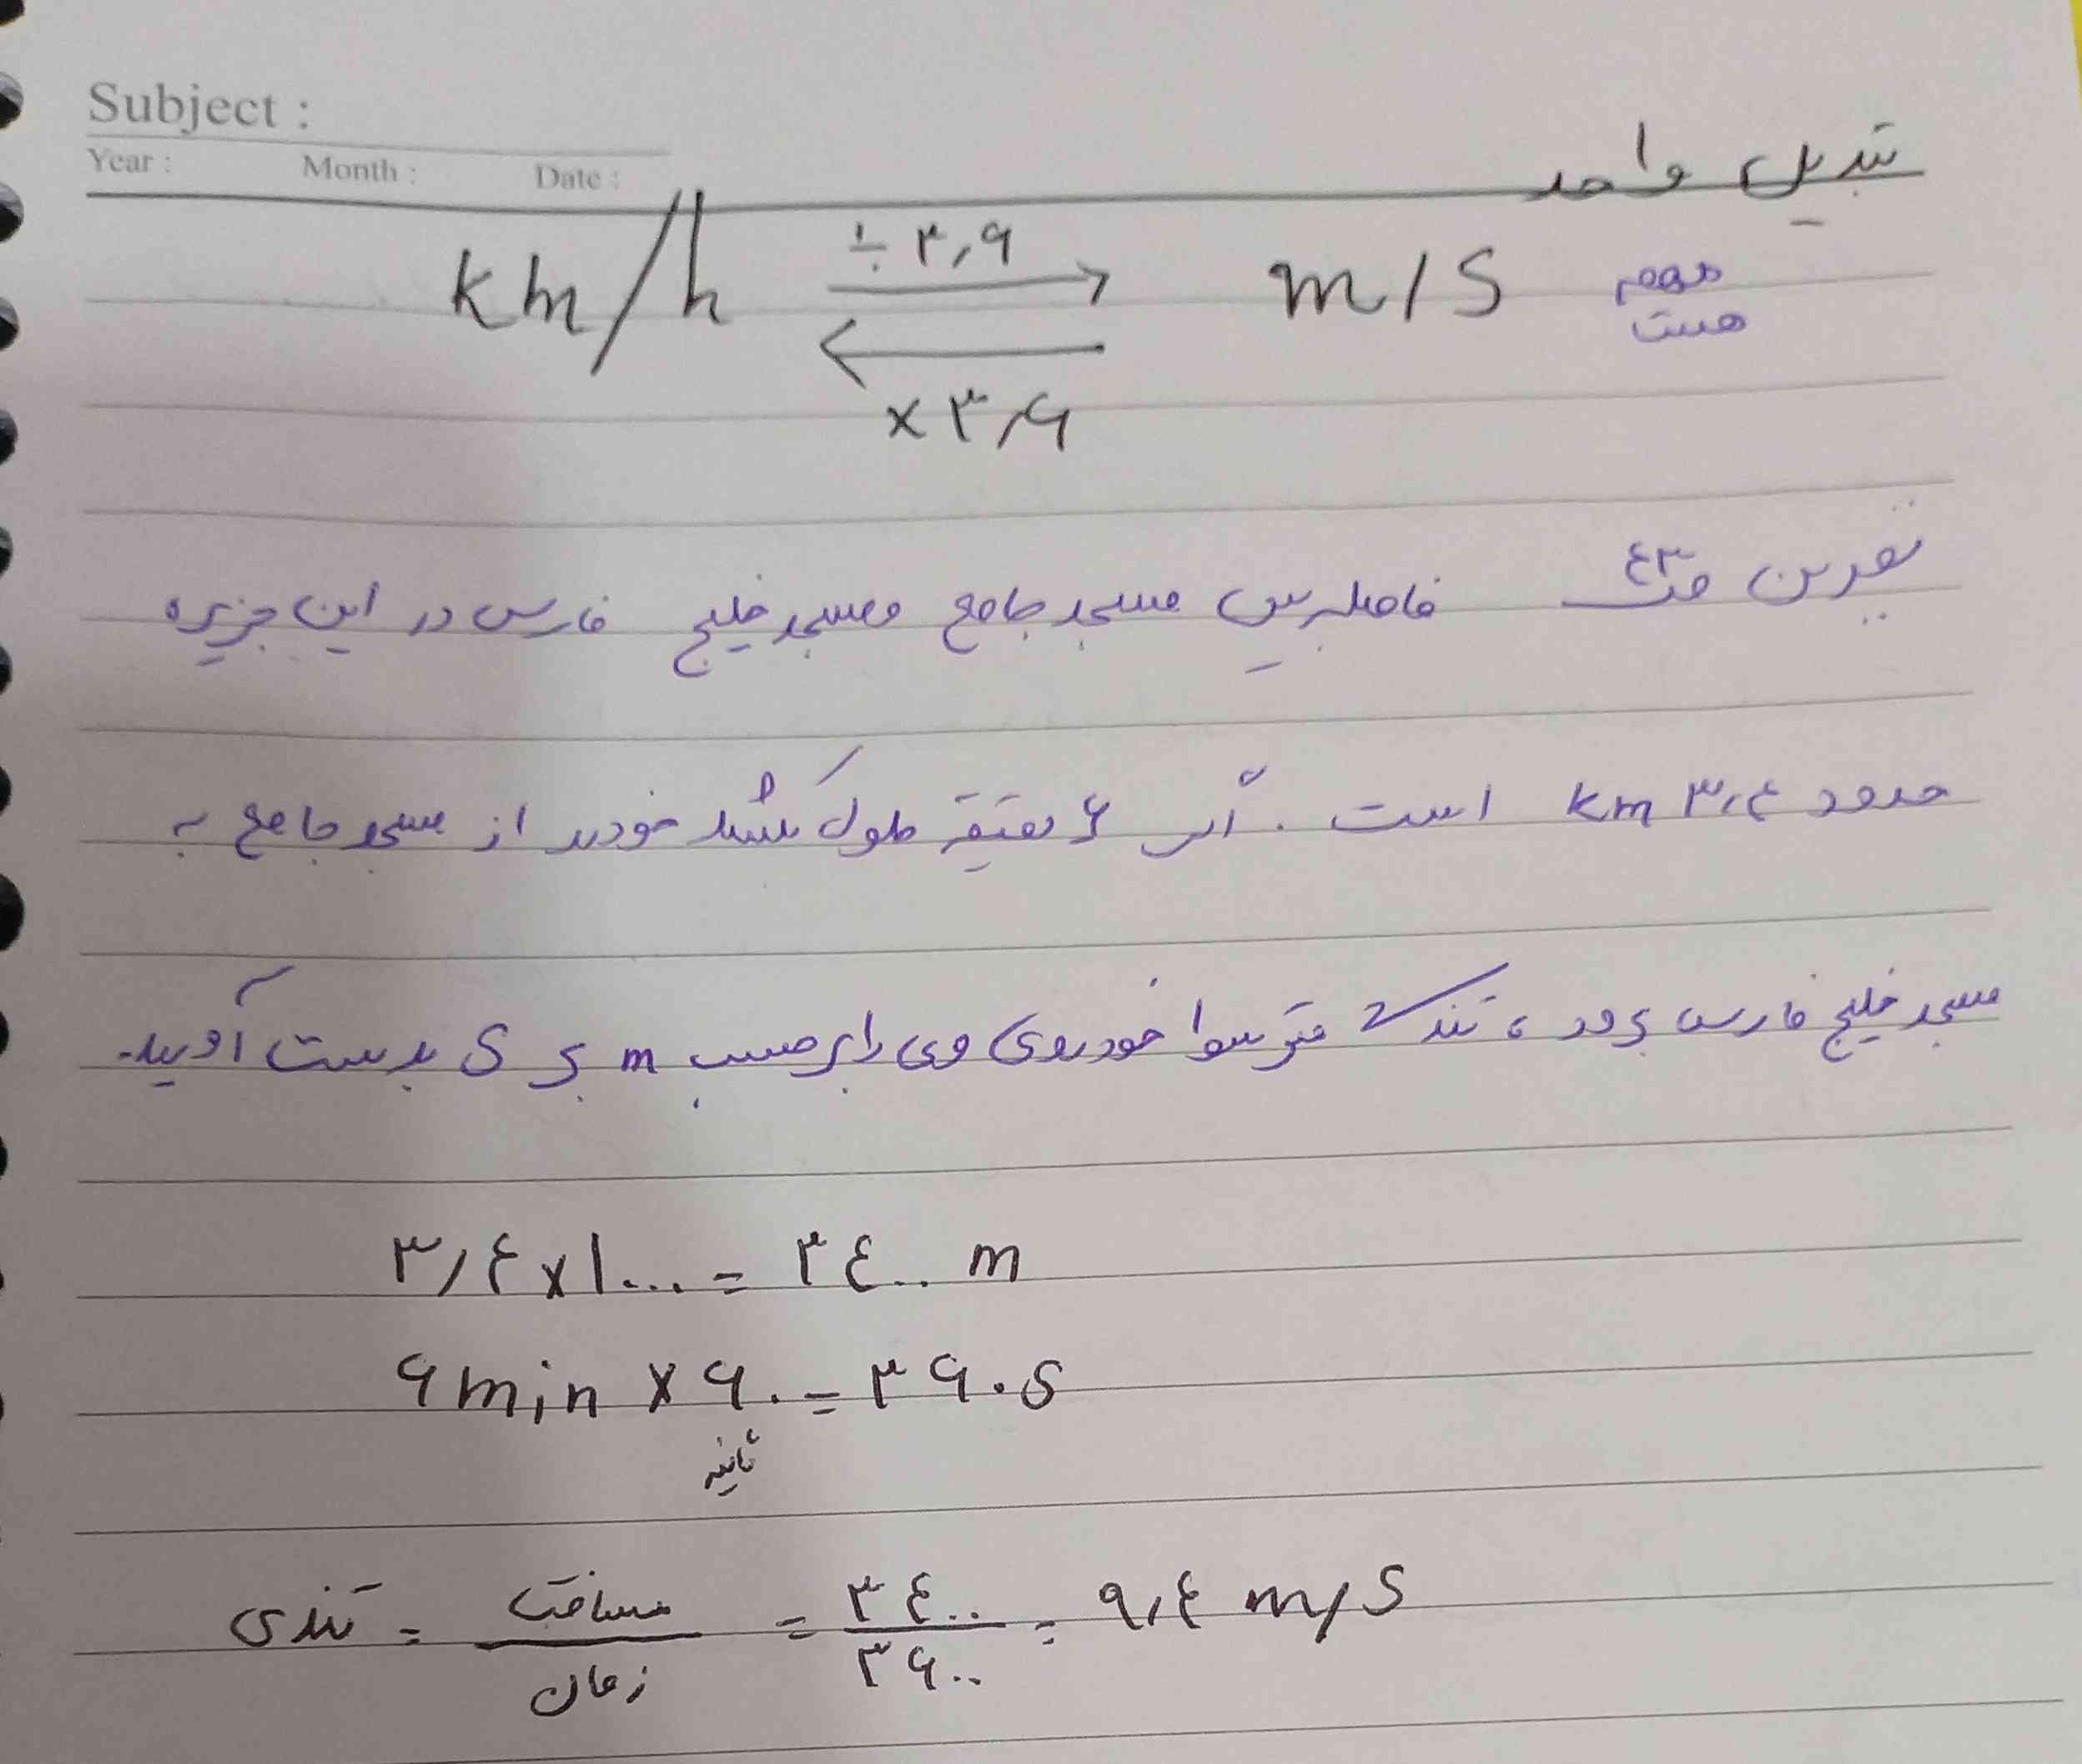 Subject :
Year :    Month :    Date :
تبدیل واحد
km/h ÷۳٫۶ → m/s مهم
← هست
×۳٫۶
تمرین ص۴۳ فاصله‌بین مسجد جامع و مسجد خلیج فارس در این جزیره
حدود ۳٫۴ km است . اگر ۶ دقیقه طول کشد خودرو از مسجد جامع به
مسجد خلیج فارس برود ، تندی متوسط خودروی وی را برحسب m بر s بدست آورید.
۳٫۴×۱۰۰۰ = ۳۴۰۰ m
۶ min × ۶۰ = ۳۶۰ s
ثانیه
تندی = مسافت / زمان = ۳۴۰۰ / ۳۶۰۰ = ۹٫۴ m/s